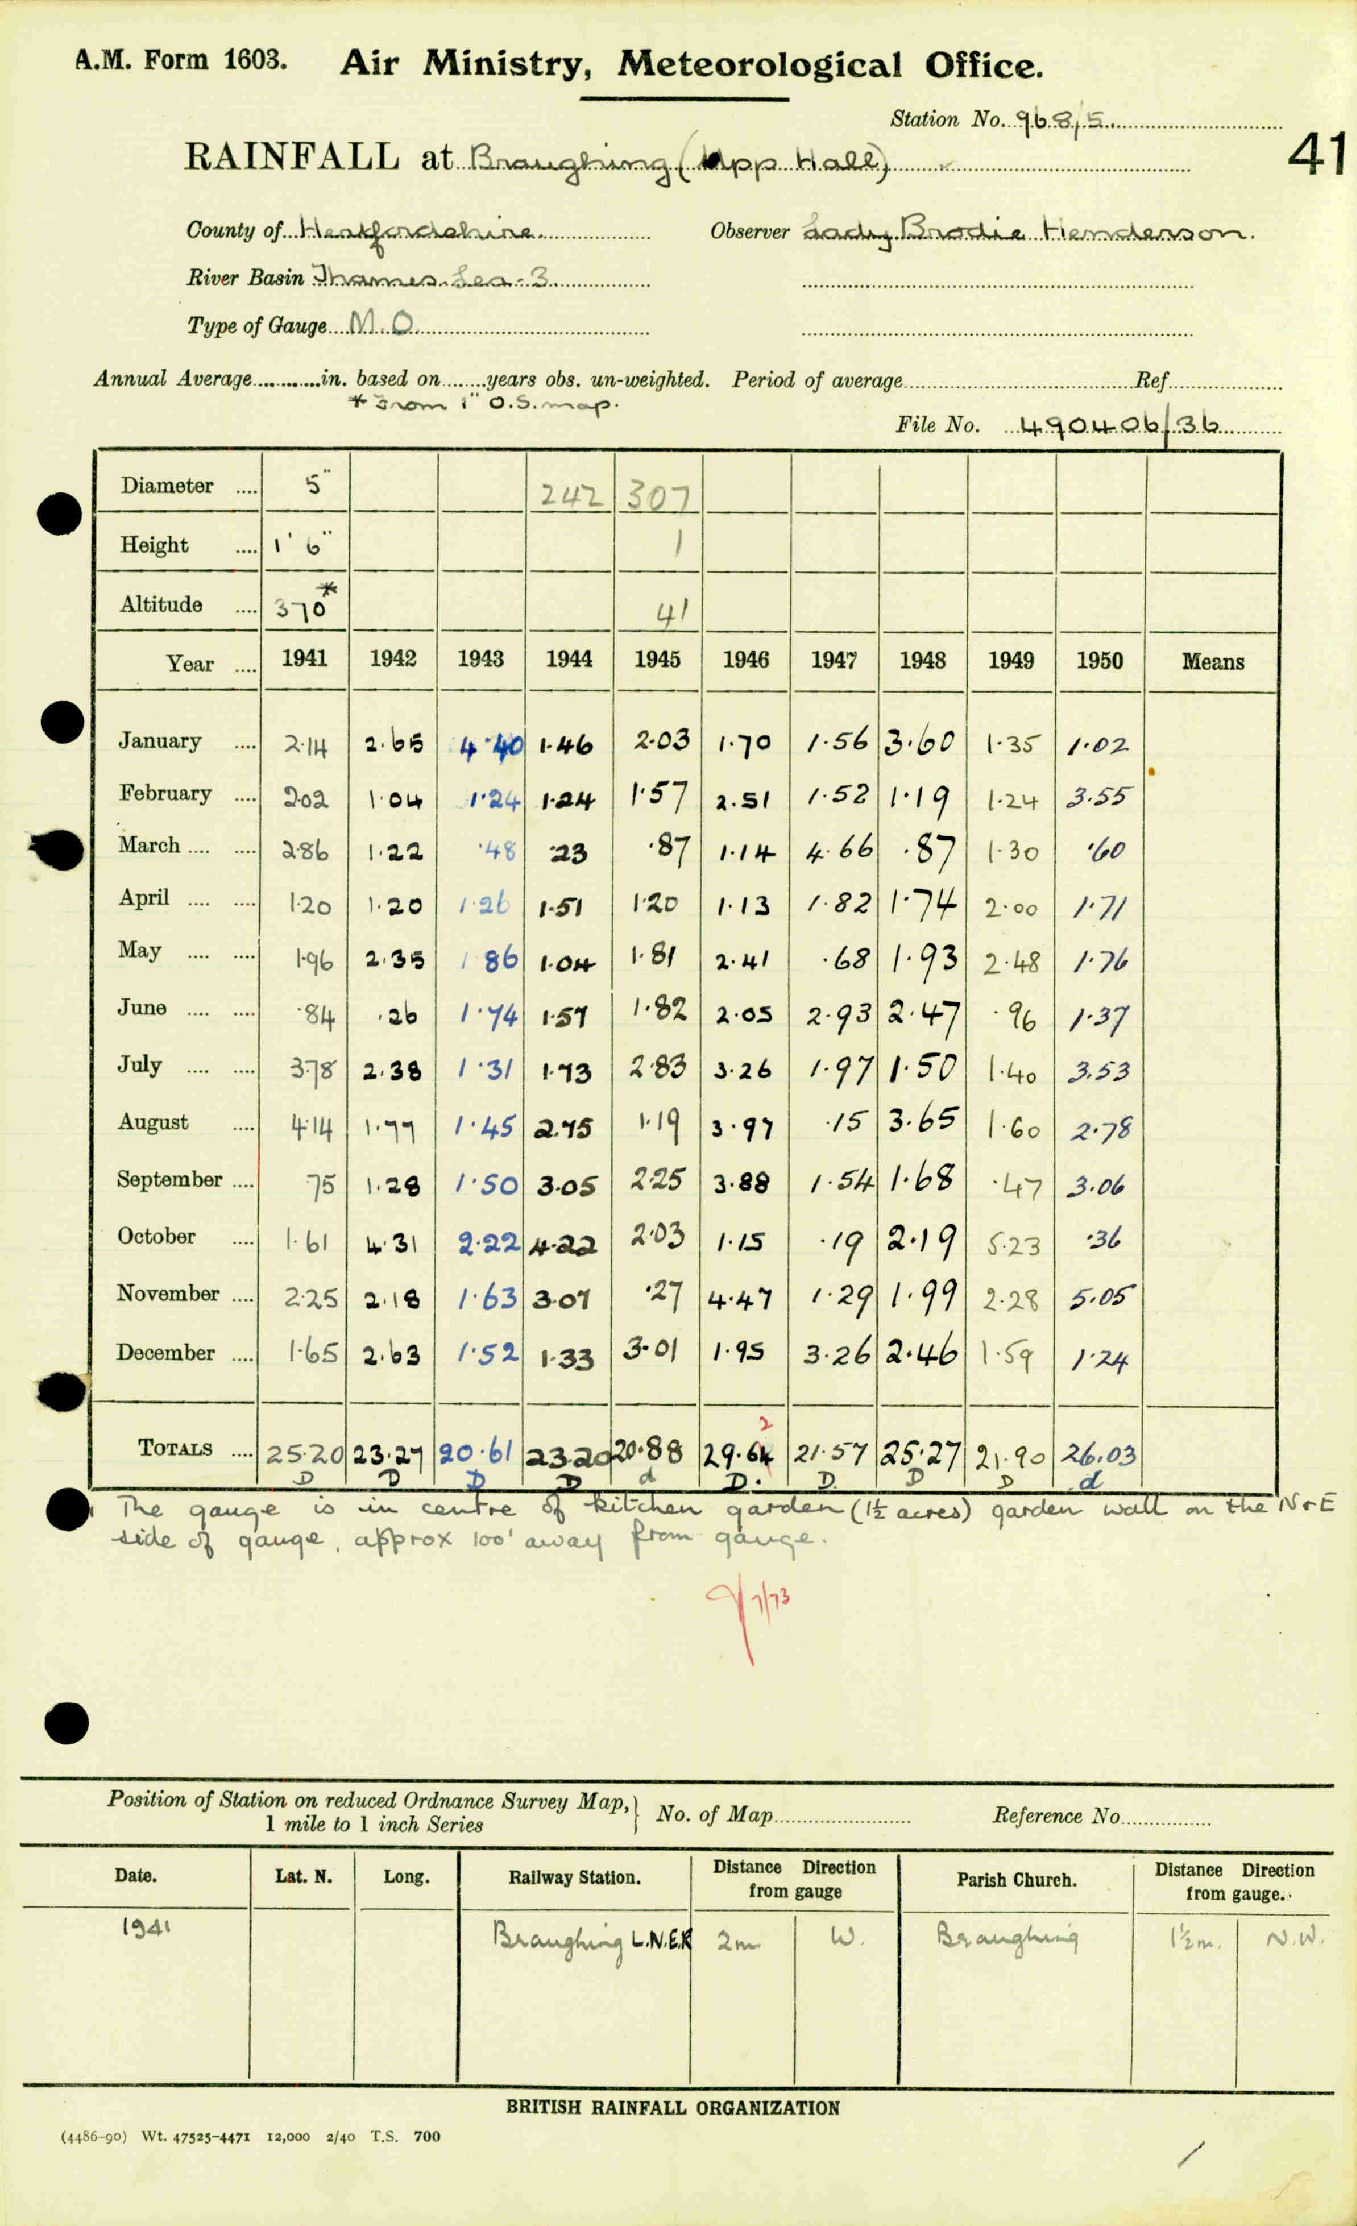 A.M. Form 1603. Air Ministry, Meteorological Office.
Station No. 968/5
41
RAINFALL at Braughing (Upp Hall)
County of Hertfordshire Observer Lady Brodie Henderson.
River Basin Thames. Lea-3
Type of Gauge M.O.
Annual Average............in. based on........years obs. un-weighted. Period of average.......... Ref..........
* From 1" O.S. map.
File No. 490406/36
Diameter .... 5" 242 307
Height .... 1' 6" 1
Altitude .... 370* 41
Year .... 1941 1942 1943 1944 1945 1946 1947 1948 1949 1950 Means
January .... 2.14 2.65 4.40 1.46 2.03 1.70 1.56 3.60 1.35 1.02
February .... 2.02 1.04 1.24 1.24 1.57 2.51 1.52 1.19 1.24 3.55
March .... .... 2.86 1.22 .48 .23 .87 1.14 4.66 .87 1.30 .60
April .... .... 1.20 1.20 1.26 1.51 1.20 1.13 1.82 1.74 2.00 1.71
May .... .... 1.96 2.35 1.86 1.04 1.81 2.41 .68 1.93 2.48 1.76
June .... .... .84 .26 1.74 1.57 1.82 2.05 2.93 2.47 .96 1.37
July .... .... 3.78 2.38 1.31 1.73 2.83 3.26 1.97 1.50 1.40 3.53
August .... 4.14 1.77 1.45 2.75 1.19 3.97 .15 3.65 1.60 2.78
September .... 75 1.28 1.50 3.05 2.25 3.88 1.54 1.68 .47 3.06
October .... 1.61 4.31 2.22 4.22 2.03 1.15 .19 2.19 5.23 .36
November .... 2.25 2.18 1.63 3.07 .27 4.47 1.29 1.99 2.28 5.05
December .... 1.65 2.63 1.52 1.33 3.01 1.95 3.26 2.46 1.59 1.24
2
TOTALS .... 25.20 23.27 20.61 23.20 20.88 29.64 21.57 25.27 21.90 26.03
D D D D d D. D. D D d
The gauge is in centre of kitchen garden (1½ acres) garden wall on the N & E
side of gauge, approx 100' away from gauge.
7/73
Position of Station on reduced Ordnance Survey Map, } No. of Map.......... Reference No..........
1 mile to 1 inch Series
Date. Lat. N. Long. Railway Station. Distance Direction from gauge Parish Church. Distance Direction from gauge.
1941 Braughing L.N.E.R 2m W. Braughing 1½m. N.W.
BRITISH RAINFALL ORGANIZATION
(4486-90) Wt. 47525-4471 12,000 2/40 T.S. 700